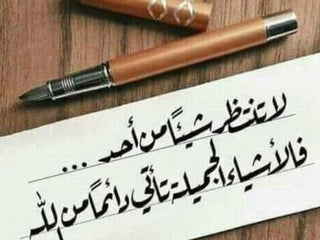 لا تنتظر شيئًا من أحد ...
فالأشياء الجميلة تأتي دائمًا من الله